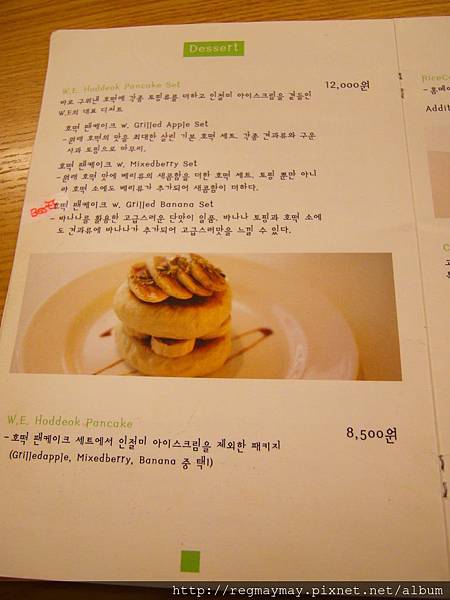 Dessert
W.E. Hoddeok Pancake Set 12,000원
바로 구워낸 호떡에 각종 토핑류를 더하고 인절미 아이스크림을 곁들인
W.E의 대표 디저트
호떡 팬케이크 w. Grilled Apple Set
-원래 호떡의 맛을 최대한 살린 기본 호떡 세트. 각종 견과류와 구운
사과 토핑으로 마무리.
호떡 팬케이크 w. Mixedberry Set
-원래 호떡 맛에 베리류의 새콤함을 더한 호떡 세트. 토핑 뿐만 아니
라 호떡 소에도 베리류가 추가되어 새콤함이 더하다.
Best
호떡 팬케이크 w. Grilled Banana Set
- 바나나를 활용한 고급스러운 단맛이 일품. 바나나 토핑과 호떡 소에
도 견과류에 바나나가 추가되어 고급스러맛을 느낄 수 있다.
W.E. Hoddeok Pancake 8,500원
-호떡 팬케이크 세트에서 인절미 아이스크림을 제외한 패키지
(Grilledapple, Mixedberry, Banana 중 택1)
RiceC
-홈메이
Addit
http://regmaymay.pixnet.net/album